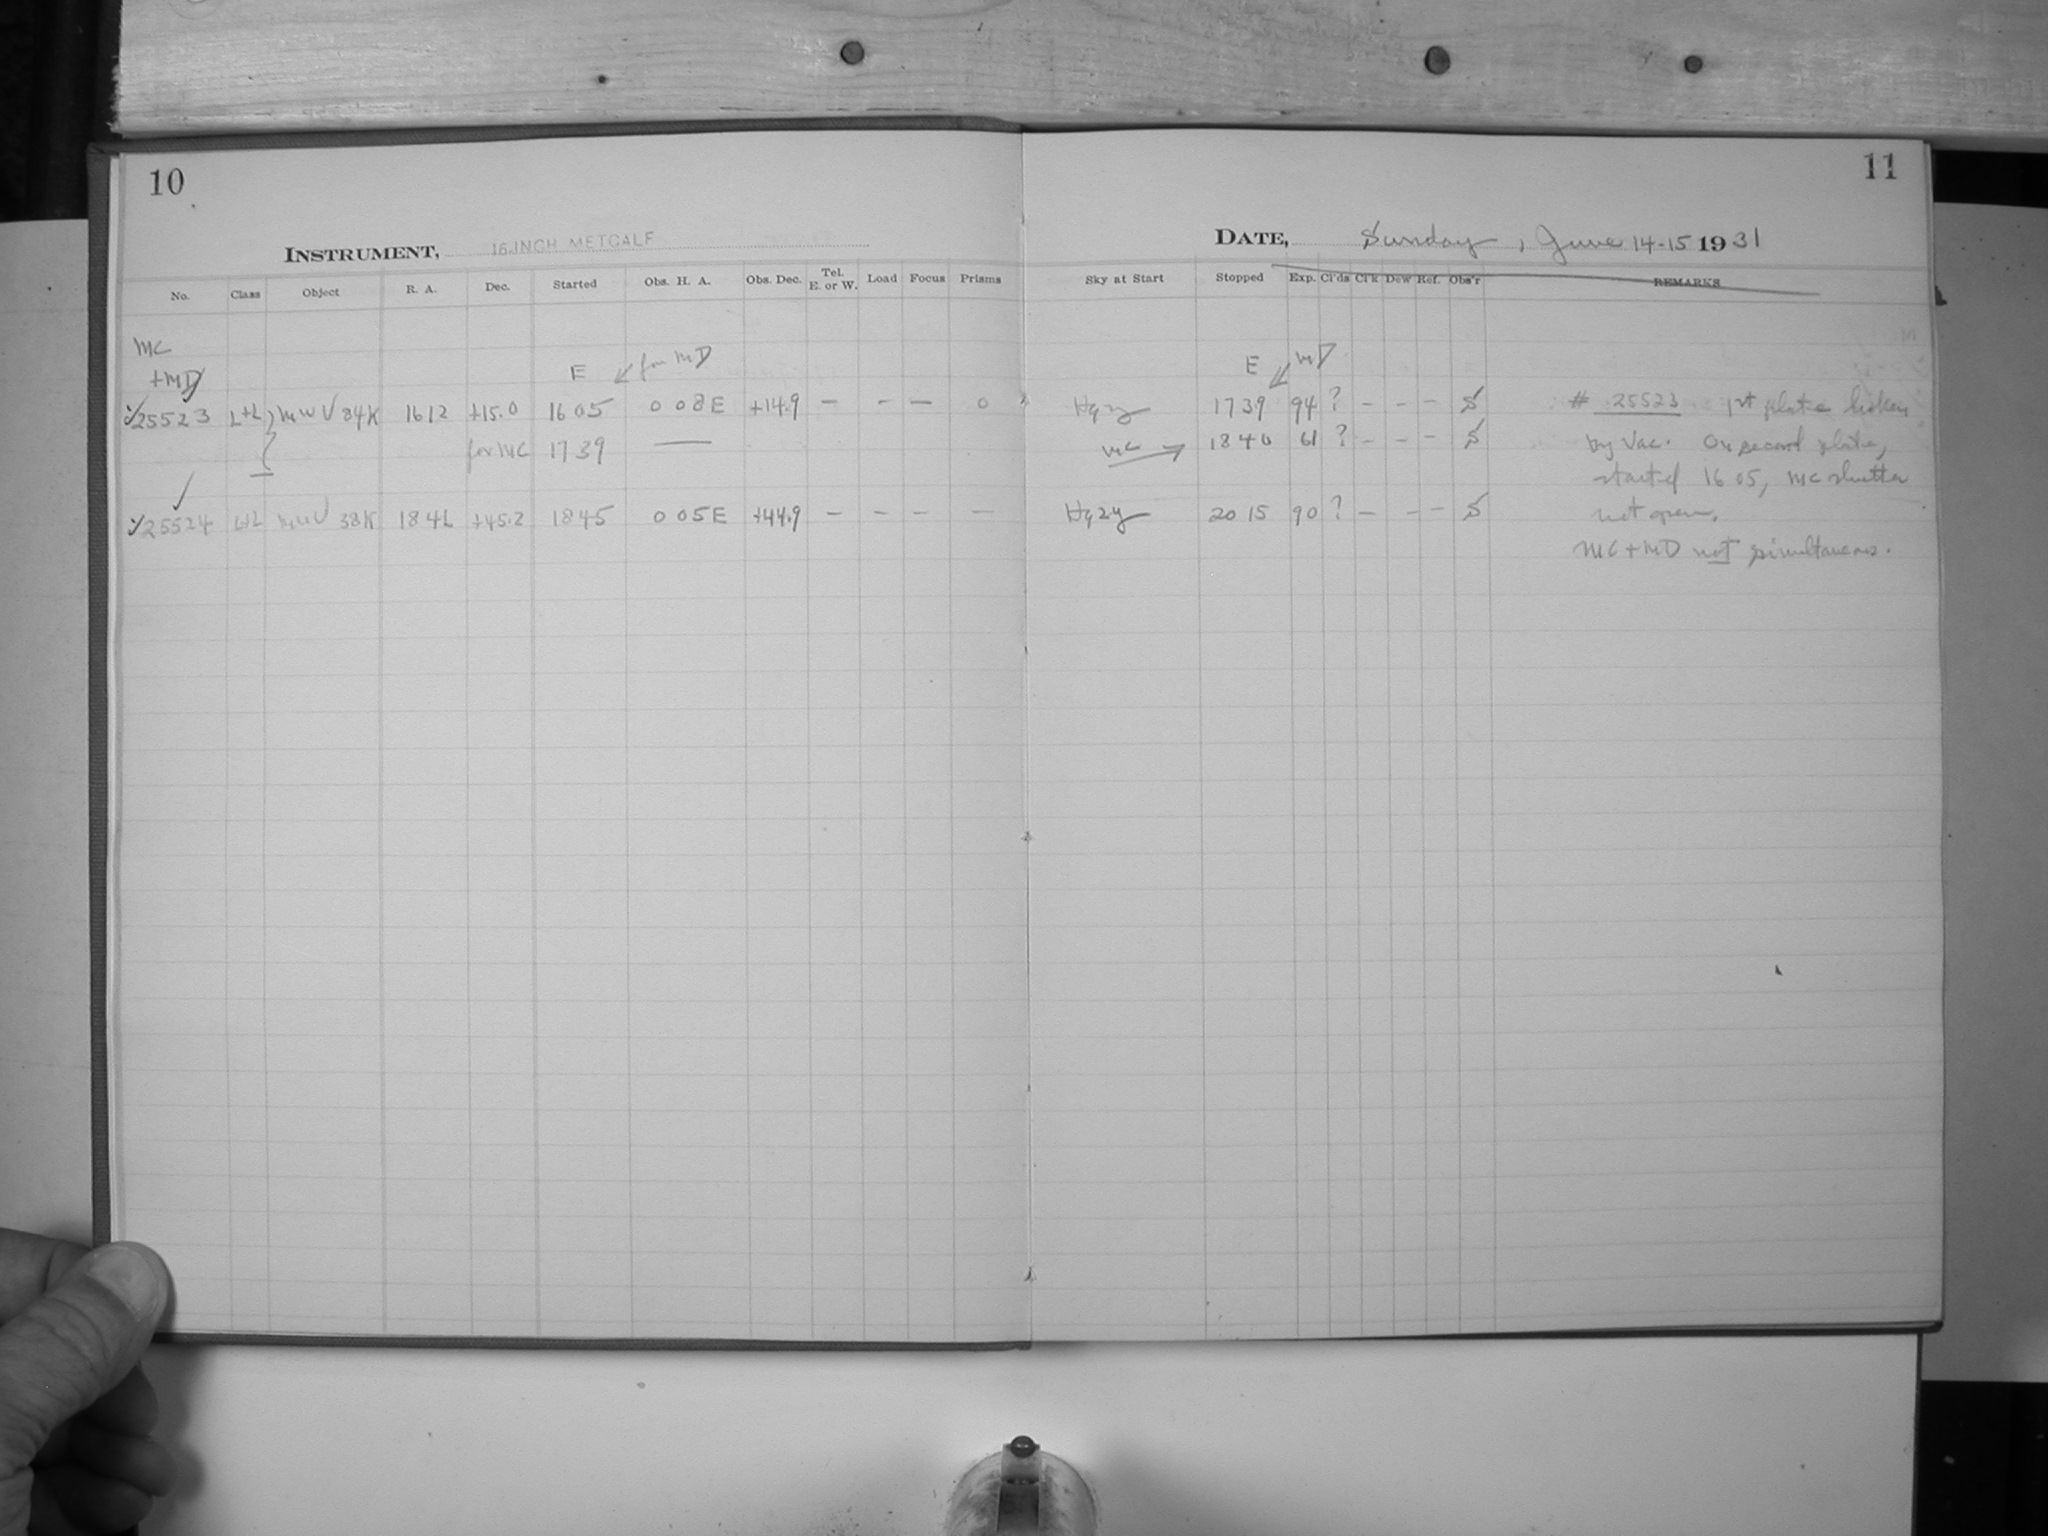 10
11
INSTRUMENT, 16-INCH METCALF
DATE, Sunday, June 14-15 1931
No. Class Object R. A. Dec. Started Obs. H. A. Obs. Dec. Tel. E. or W. Load Focus Prisms Sky at Start Stopped Exp. Cl'ds Cl'k Dew Ref. Obs'r REMARKS
MC
+MD
E ↙ for MD E ↙ MD
✓25523 L+L MWV 84K 1612 +15.0 1605 0 08E +14.9 — - — 0 Hazy 1739 94 ? - - - S # 25523 1st plate broken
for MC 1739 — MC → 1840 61 ? - - - S by Vac. On second plate,
started 1605, MC shutter
✓25524 L+L MWV 38K 1846 +45.2 1845 0 05E +44.9 — - — — Hazy 2015 90 ? — - - S not open.
MC+MD not simultaneous.